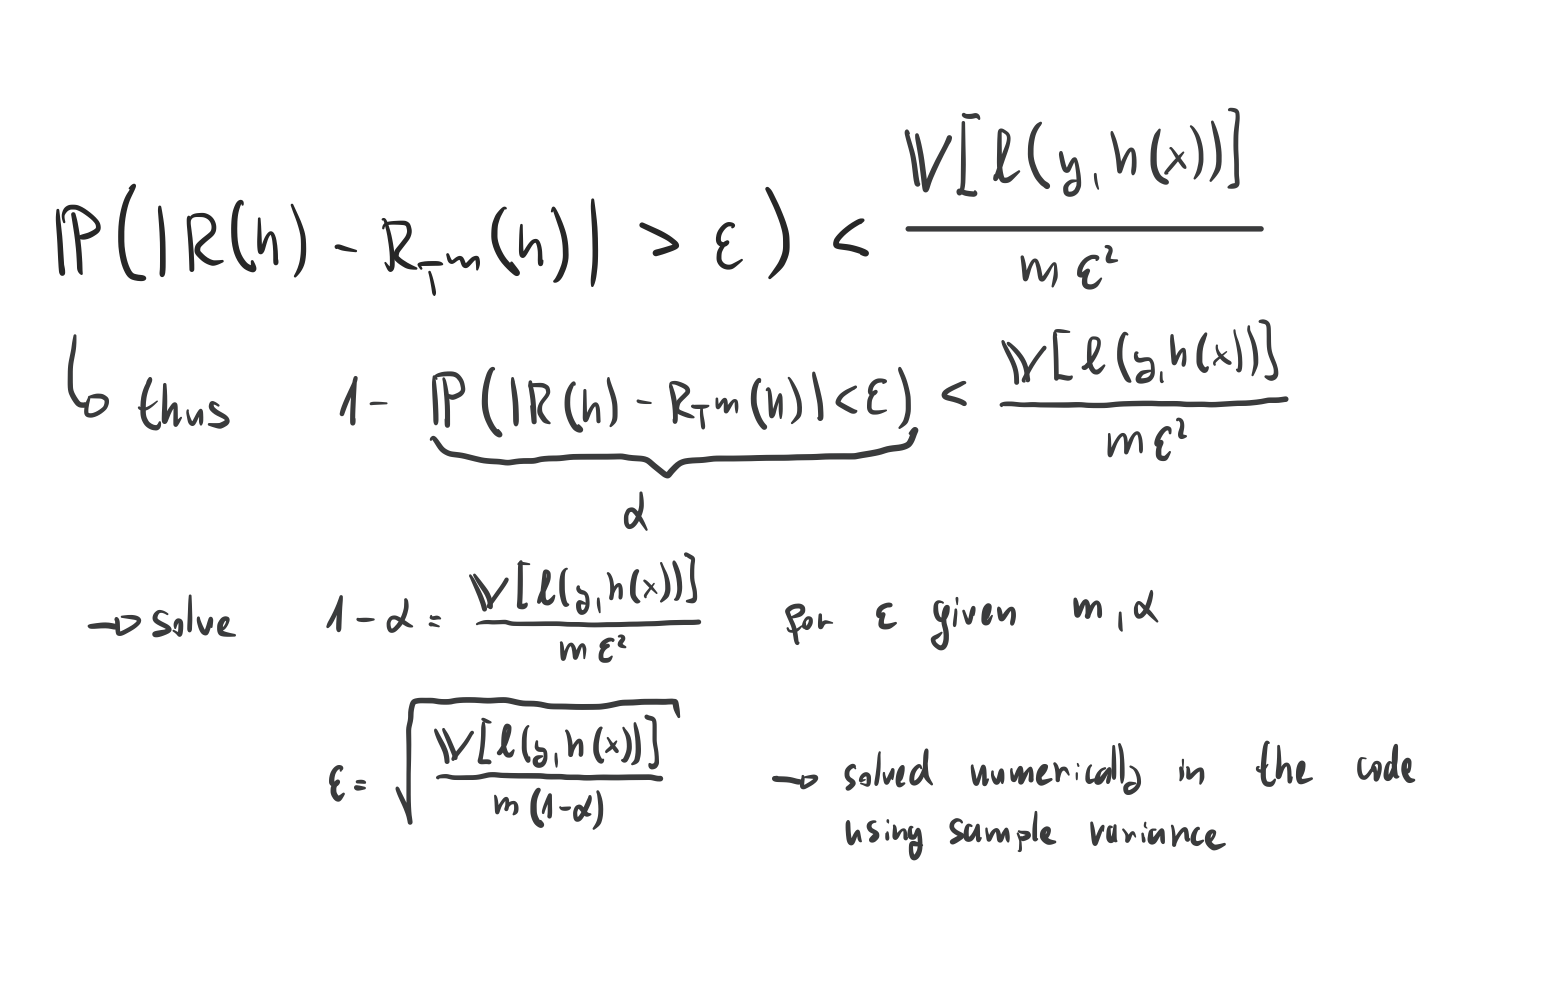 ℙ(|R(h) - R_{T^m}(h)| > ε) < 𝕍[ℓ(y, h(x))] / mε²
↳ thus 1 - ℙ(|R(h) - R_{T^m}(h)| < ε) < 𝕍[ℓ(y, h(x))] / mε²
α
→ solve 1 - α = 𝕍[ℓ(y, h(x))] / mε² for ε given m, α
ε = √(𝕍[ℓ(y, h(x))] / m(1-α)) → solved numerically in the code
using sample variance